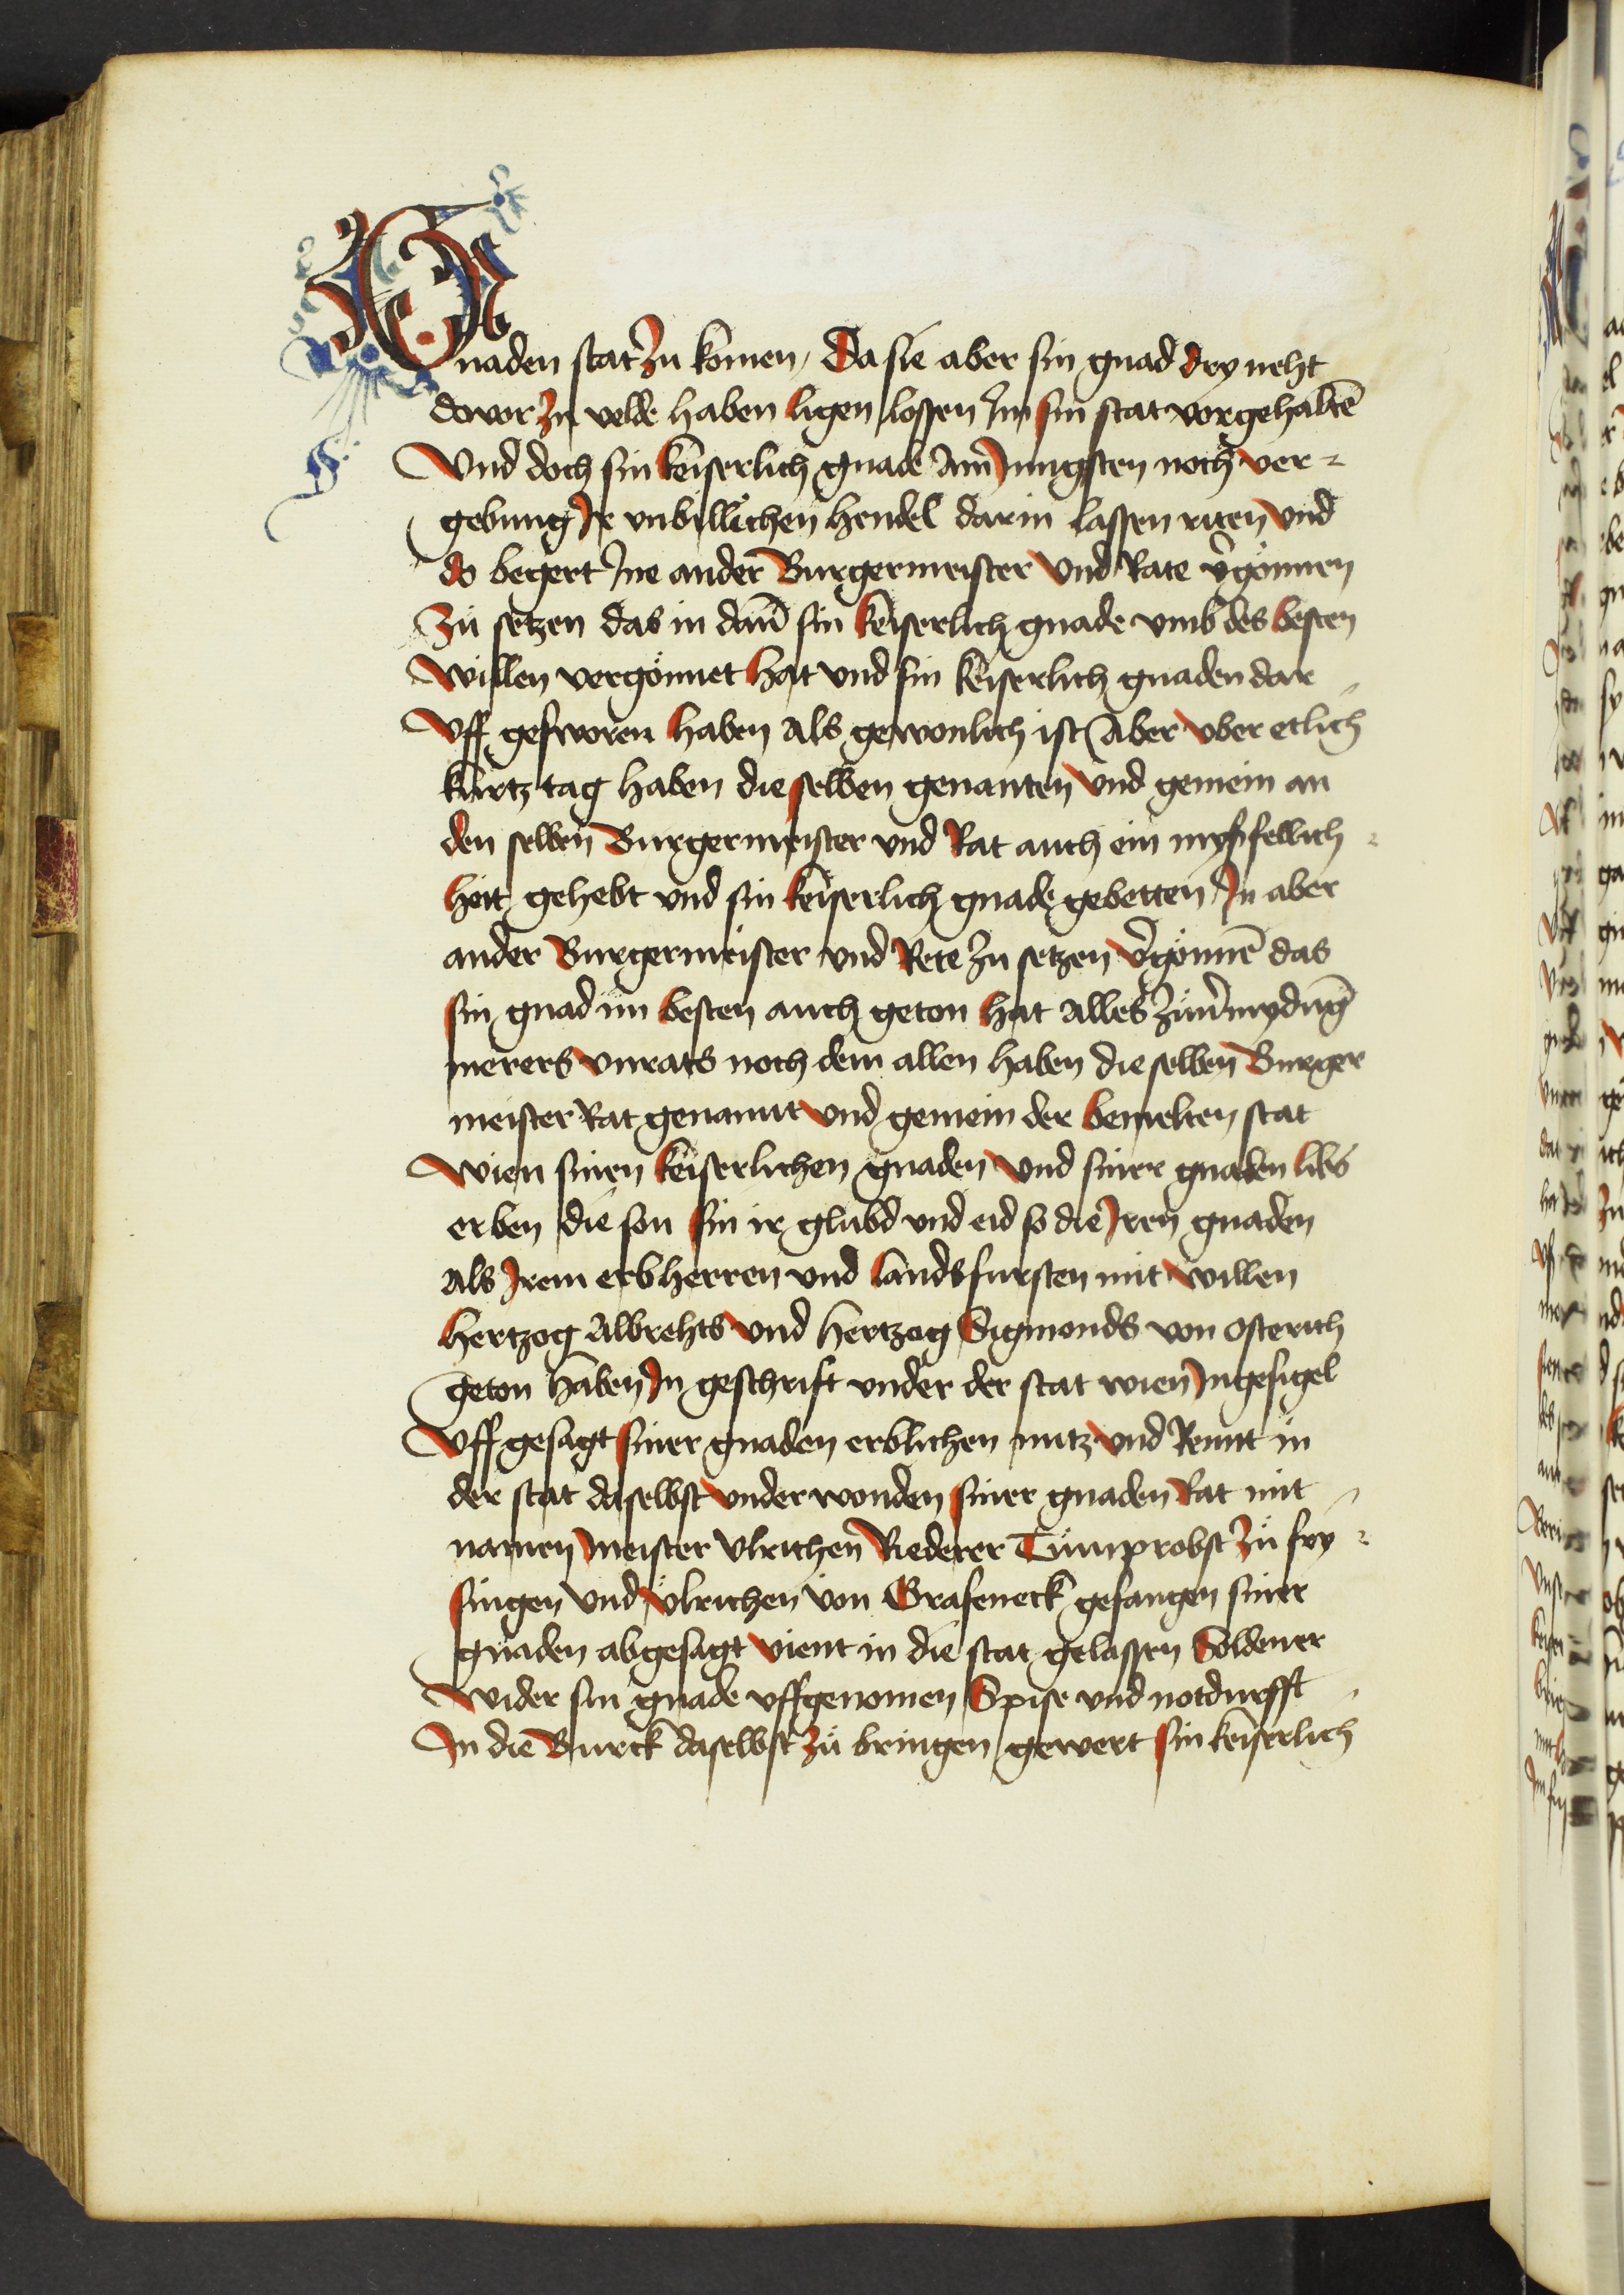 Gnaden stat zu komen, Da sie aber sin gnad dry neht
dovor zu velde haben ligen lossen Im sin stat vorgehaltē
Und doch sin keiserlich gnade Am Jungsten noch ver-
gebung Jr unbillichen hendel darin lassen riten und
do begert Jne ander Burgermeister und Rate v̓gönnen
Zü setzen das in dañ sin keiserlich gnade umb des besten
willen vergönnet hat und sin keiserlich gnaden dar-
Uff gesworen haben als gewonlich ist Aber uber etlich
kurtz tag haben die selben genanten und gemein an
den selben Burgermeister und Rat auch ein myßfellich-
heit gehebt und sin keiserlich gnade gebetten Jn aber
ander Burgermeister und Rete zu setzen v̓gönnē das
sin gnad im besten auch geton hat alles zü v̓mydūg
merers unrats noch dem allen haben die selben Burger
meister Rat genannt und gemein der bemelten stat
Wien sinen keiserlichen gnaden und siner gnaden libs
erben die son sin ir glubd und eid so die Jren gnaden
als Jrem erbherren und landsfursten mit willen
hertzog Albrehts und hertzog Sigmonds von osterich
geton haben Jn geschrift under der stat wien Jngesigel
Uff gesagt siner gnaden erblichen nutz und Rennt in
der stat daselbst underwonden siner gnaden Rat mit-
namen meister Ulrichen Riederer Tümprobst zü fry-
singen und Ulrichen von Grafeneck gefangen siner
gnaden abgesagt vient in die stat gelassen Soldener
wider sin gnade uffgenomen Spise und notdurfft-
Jn die Burck daselbst zü bringen gewert sin keiserlich